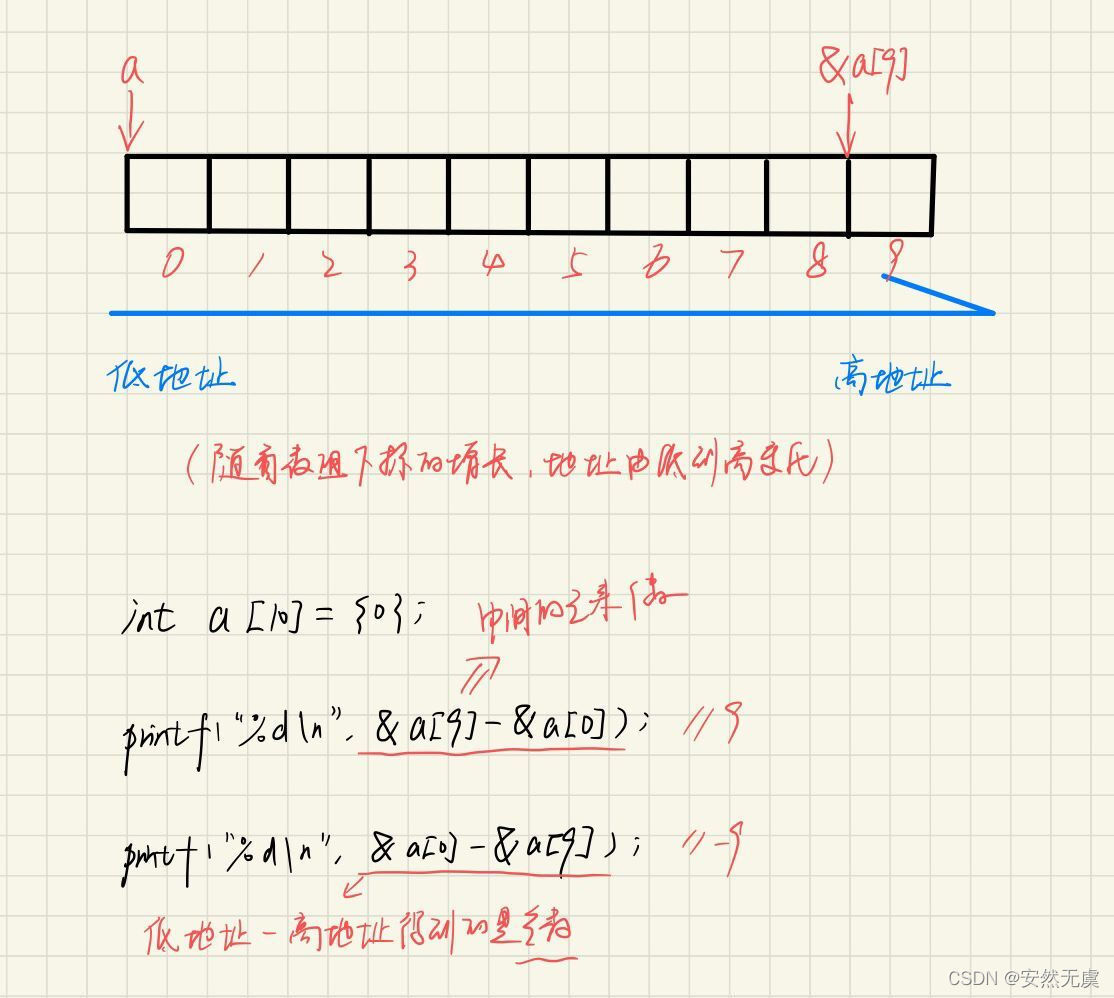 a &a[9]
0 1 2 3 4 5 6 7 8 9
低地址 高地址
(随着数组下标的增长,地址由低到高变化)
int a[10]={0}; 中间的元素个数
printf("%d\n", &a[9]-&a[0]); //9
printf("%d\n", &a[0]-&a[9]); //-9
低地址-高地址得到的是负数
CSDN @安然无虞